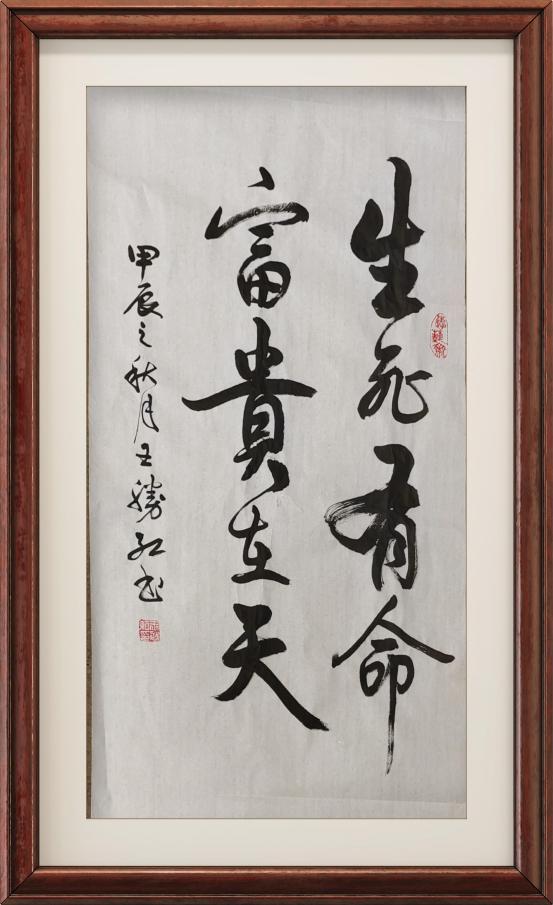 生死有命
富貴在天
甲辰之秋月王勝紅書